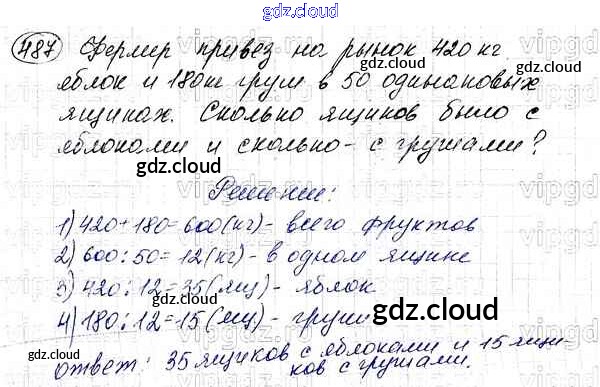 gdz.cloud
487 Фермер привез на рынок 420 кг
яблок и 180 кг груш в 50 одинаковых
ящиках. Сколько ящиков было с
яблоками и сколько - с грушами?
gdz.cloud
gdz.cloud
Решении:
1) 420+180=600(кг)- всего фруктов
2) 600:50=12(кг)- в одном ящике
3) 420:12=35(ящ)- яблок
gdz.cloud
gdz.cloud
4) 180:12=15(ящ)- груши
ответ: 35 ящиков с яблоками и 15 ящи-
ков с грушами.
gdz.cloud